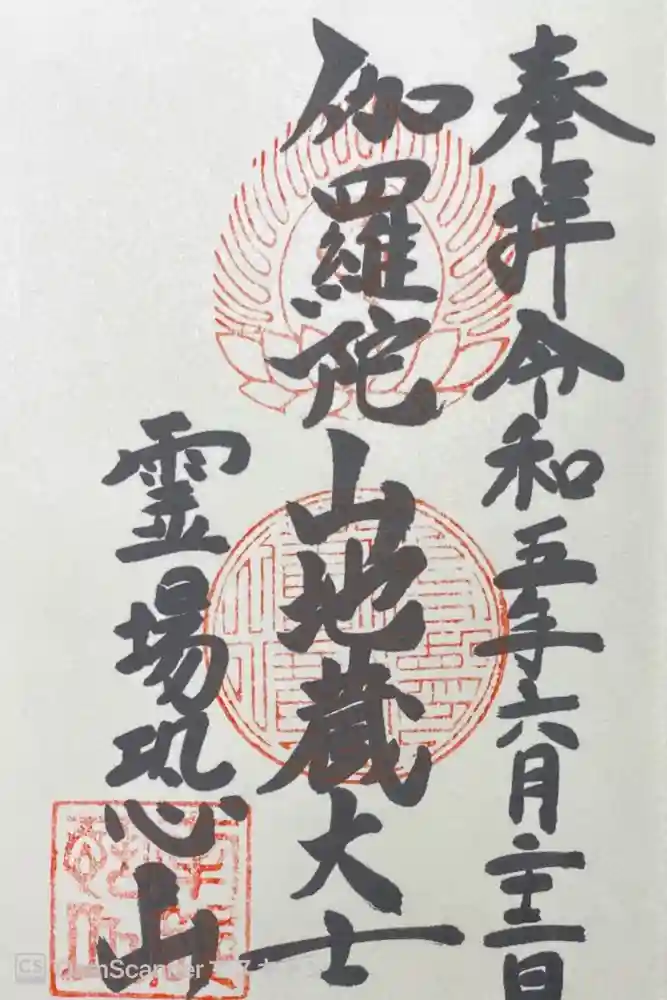 奉拝 令和五年六月 日
伽羅陀山地蔵大士
霊場恐山
CS CamScanner